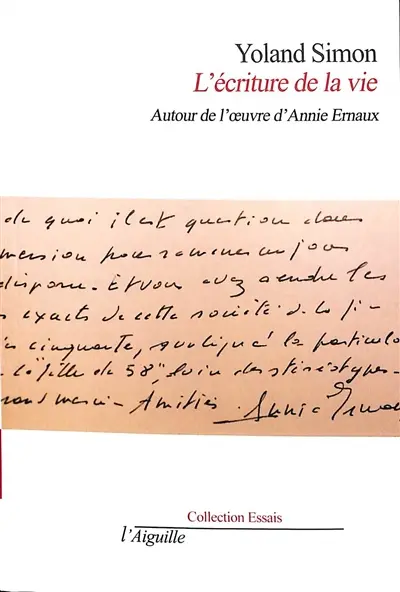 Yoland Simon
L'écriture de la vie
Autour de l'œuvre d'Annie Ernaux
de quoi il est question dans
version pour ramener un jour
Et vous avez rendre les
s exacts de cette société de la fi-
es cinquante, appliqué à la particula
la "fille de 58", loin des stéréotypes-
rand merci - Amitiés Annie Ernau
Collection Essais
l'Aiguille